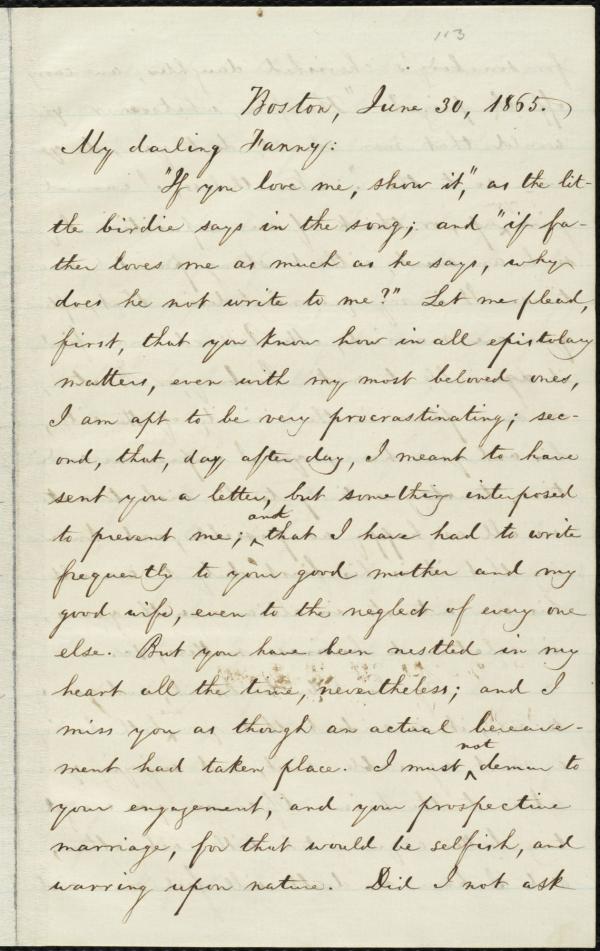 113
Boston, June 30, 1865.
My darling Fanny:
"If you love me, show it," as the lit-
tle birdie says in the song; and "if fa-
ther loves me as much as he says, why
does he not write to me?" Let me plead,
first, that you know how in all epistolary
matters, even with my most beloved ones,
I am apt to be very procrastinating; sec-
ond, that, day after day, I meant to have
sent you a letter, but something interposed
to prevent me; and that I have had to write
frequently to your good mother and my
good wife, even to the neglect of every one
else. But you have been nestled in my
heart all the time, nevertheless; and I
miss you as though an actual bereave-
ment had taken place. I must not demur to
your engagement, and your prospective
marriage, for that would be selfish, and
warring upon nature. Did I not ask